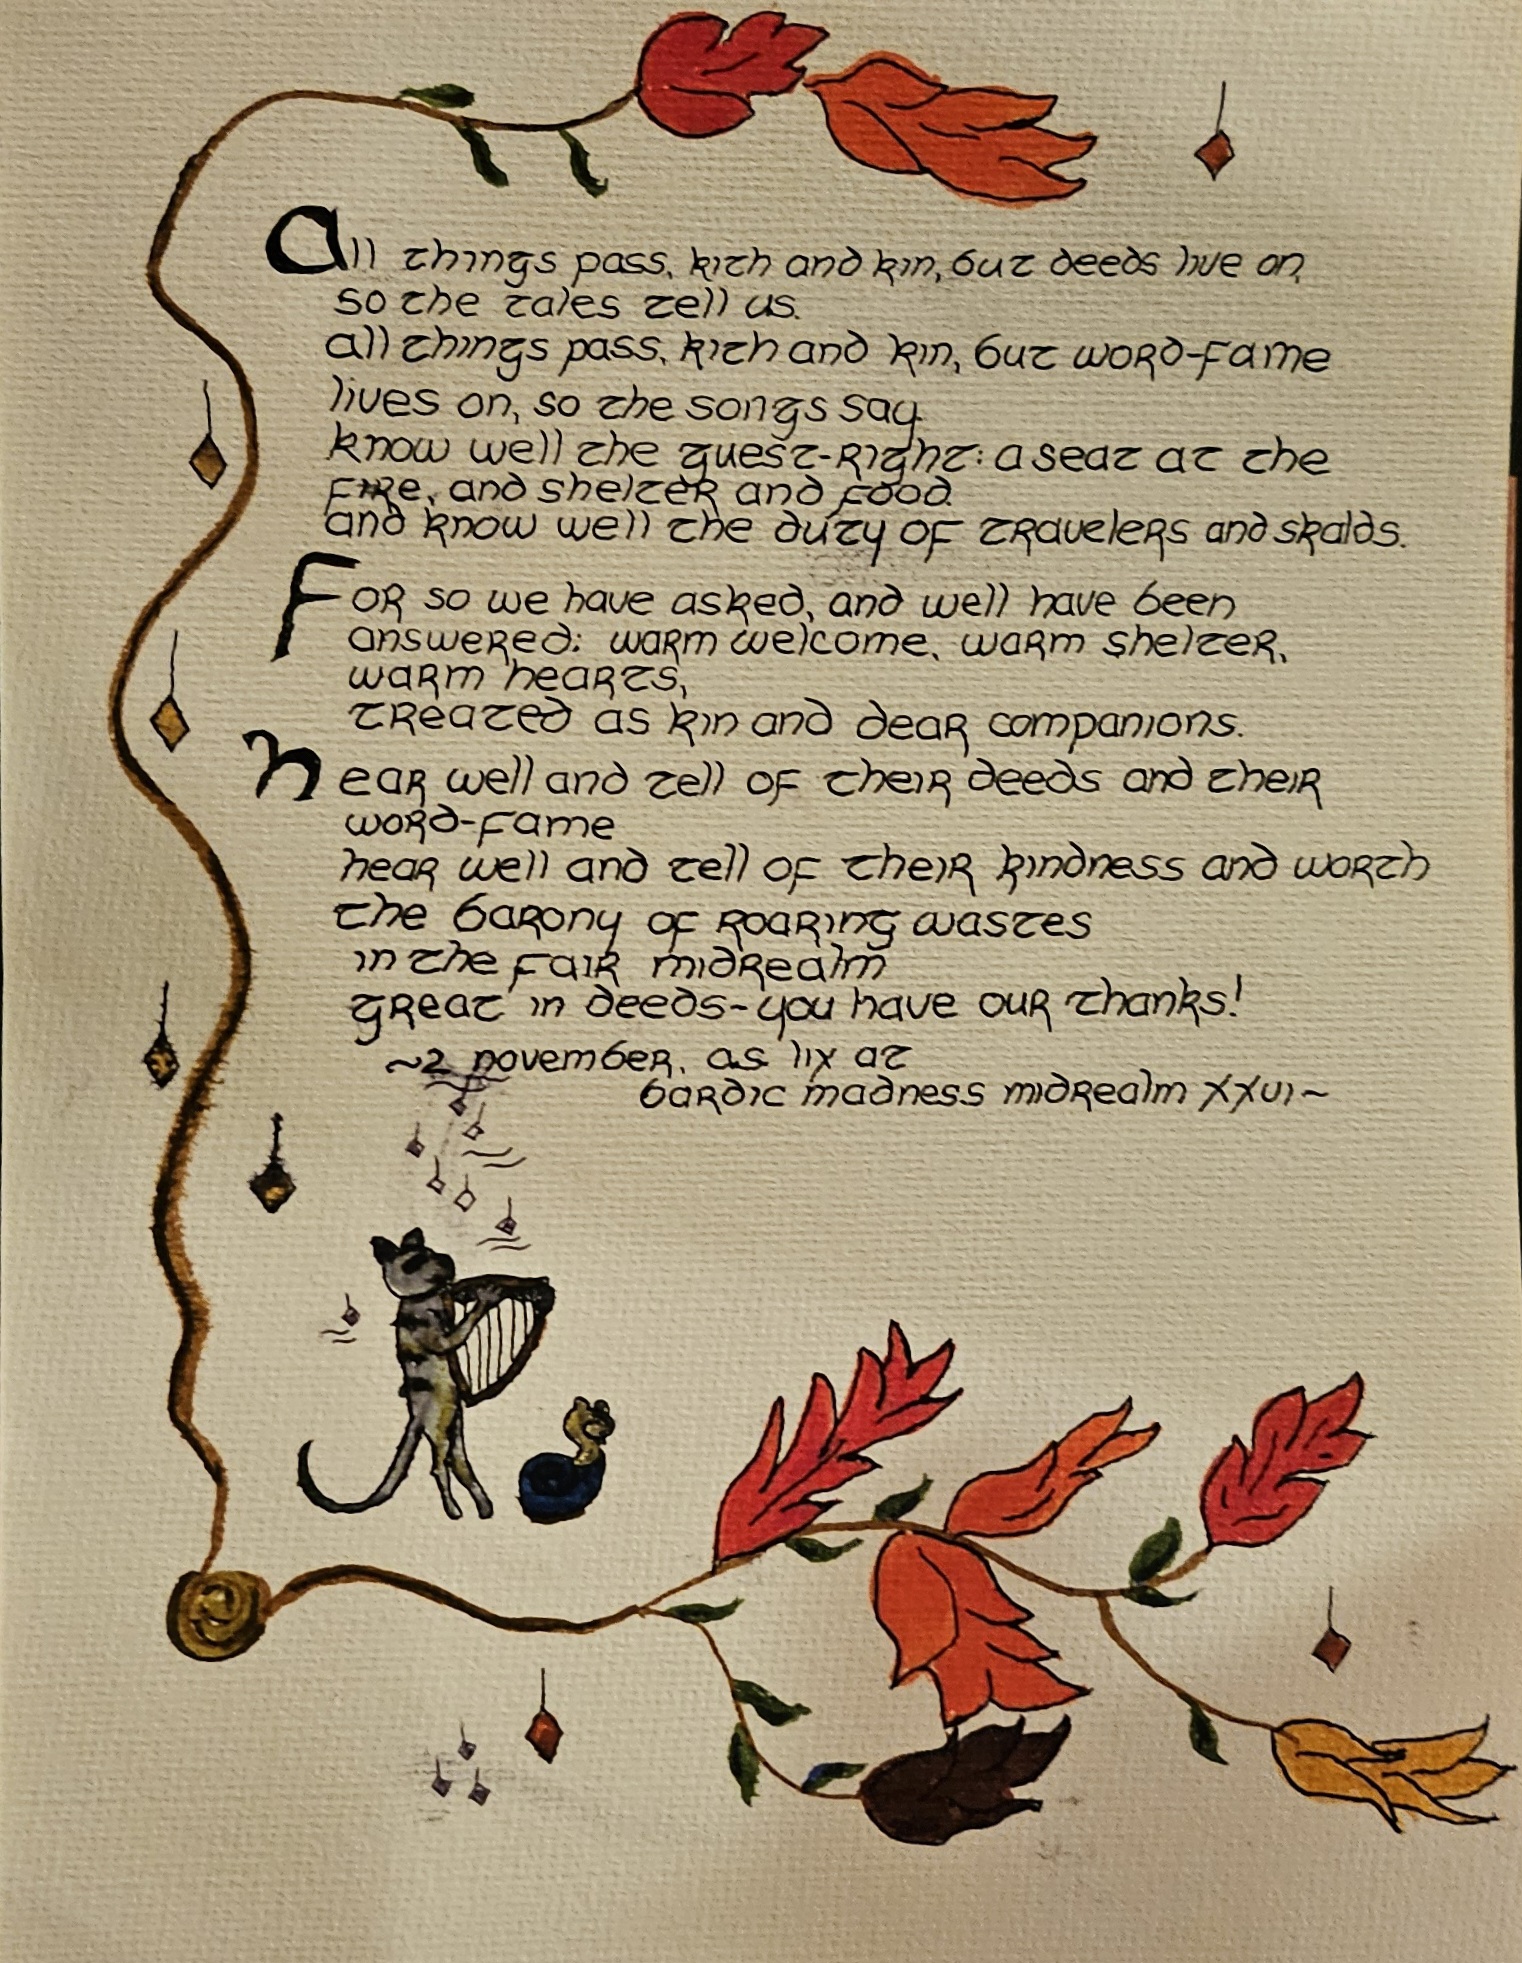 All things pass, kith and kin, but deeds live on,
so the tales tell us.
all things pass, kith and kin, but word-fame
lives on, so the songs say.
know well the guest-right: a seat at the
fire, and shelter and food.
and know well the duty of travelers and skalds.
For so we have asked, and well have been
answered: warm welcome, warm shelter,
warm hearts,
treated as kin and dear companions.
Hear well and tell of their deeds and their
word-fame
hear well and tell of their kindness and worth
the barony of roaring wastes
in the fair midrealm
great in deeds-you have our thanks!
~2 november, as lix at
bardic madness midrealm xxvi~